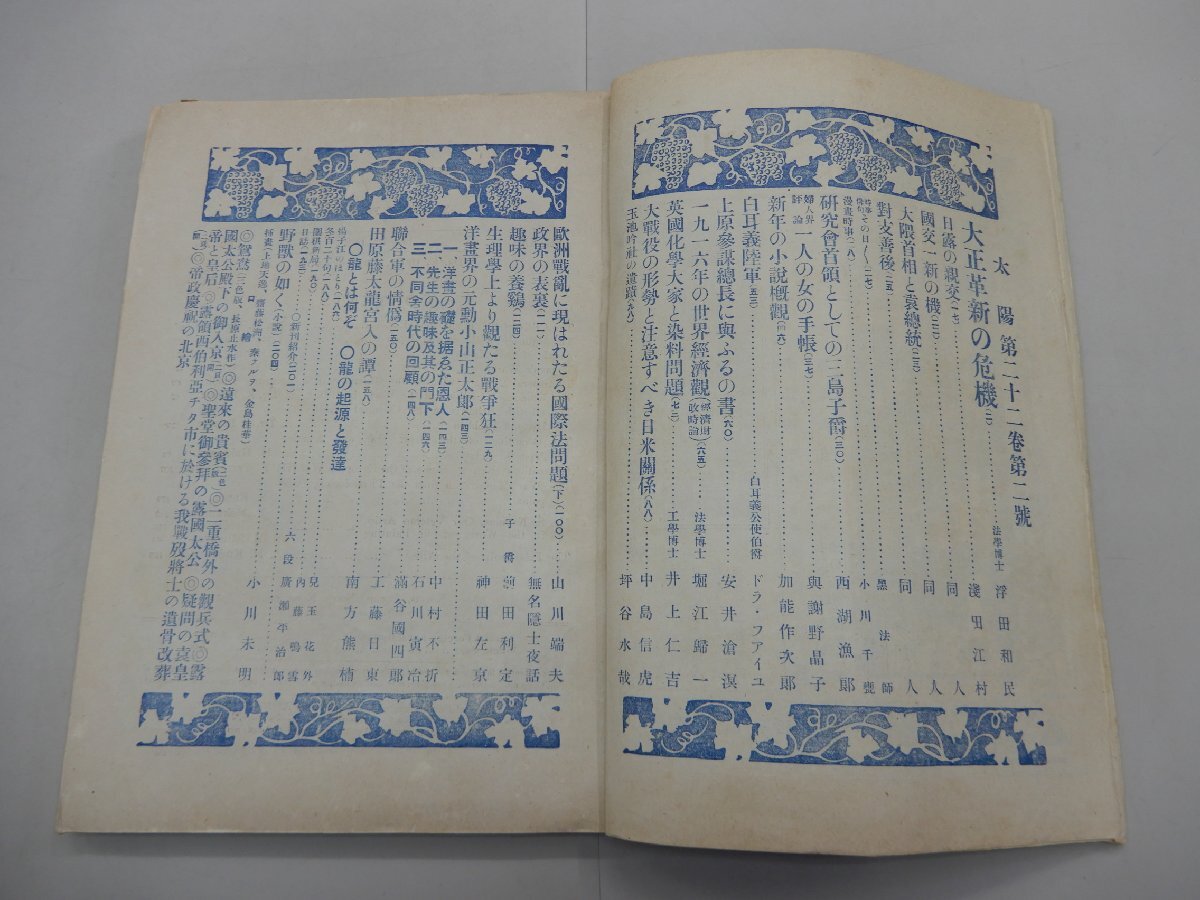 太陽 第二十二卷第二號
大正革新の危機(二)……法學博士 浮田和民
日露の親交(一七)……淺田江村
國交一新の機(二二)……同人
大隈首相と袁總統(二三)……同人
對支善後(二五)……同人
時事俳句その日〳〵(二七)……黑法師
漫畫時事(二八)……小川千甕
研究會首領としての三島子爵(三〇)……西湖漁郞
婦人界評論 一人の女の手帳(三七)……與謝野晶子
新年の小說槪觀(四六)……加能作次郞
白耳義陸軍(五三)……白耳義公使伯爵 ドラ・フアイユ
上原參謀總長に與ふるの書(六〇)……安井滄溟
一九一六年の世界經濟觀(經濟財政時論)(六五)……法學博士 堀江歸一
英國化學大家と染料問題(七二)……工學博士 井上仁吉
大戰役の形勢と注意すべき日米關係(八八)……中島信虎
玉池吟社の遺蹟(九八)……坪谷水哉
歐洲戰亂に現はれたる國際法問題(下)(一〇〇)……山川端夫
政界の表裏(一一一)……無名隱士夜話
趣味の養鷄(一二四)……子爵 前田利定
生理學上より觀たる戰爭狂(一二九)……神田左京
洋畫界の元勳小山正太郞(一四三)
一、洋畫の礎を据ゑた恩人(一四三)……中村不折
二、先生の趣味及其の門下(一四六)……石川寅冶
三、不同舍時代の回顧(一四八)……滿谷國四郞
聯合軍の情僞(一五〇)……工藤日東
田原藤太龍宮入の譚(一五八)……南方熊楠
〇龍とは何ぞ 〇龍の起源と發達
揚子江のほとり(一八六)……兒玉花外
冬百二十句(一八八)……內藤鳴雪
圍棋新局(一九〇)……六段 廣瀨平治郞
日誌(一九三)……〇新刊紹介(二〇一)
野獸の如く(小說)(二〇四)……小川未明
口繪
◎鴛鴦(三色版、長原止水作)◎遠來の貴賓(二色)◎二重橋外の觀兵式◎露國太公殿下の御入京◎聖堂御參拜の露國太公◎疑問の袁皇帝と皇后◎露領西伯利亞チタ市に於ける我戰歿將士の遺骨改葬◎帝政慶祝の北京